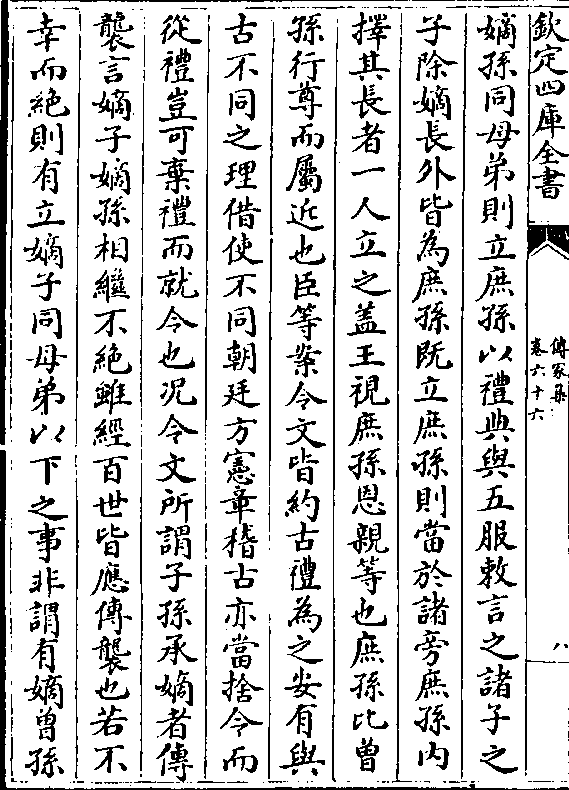 欽定四庫全書
傳家集
卷六十六
八
嫡孫同母弟則立庶孫以禮典與五服敕言之諸子之
子除嫡長外皆為庶孫既立庶孫則當於諸旁庶孫内
擇其長者一人立之蓋王視庶孫恩親等也庶孫比曾
孫行尊而屬近也臣等案令文皆約古禮為之安有與
古不同之理借使不同朝廷方憲章稽古亦當捨令而
從禮豈可棄禮而就令也况令文所謂子孫承嫡者傳
襲言嫡子嫡孫相繼不絶雖經百世皆應傳襲也若不
幸而絶則有立嫡子同母弟以下之事非謂有嫡曾孫